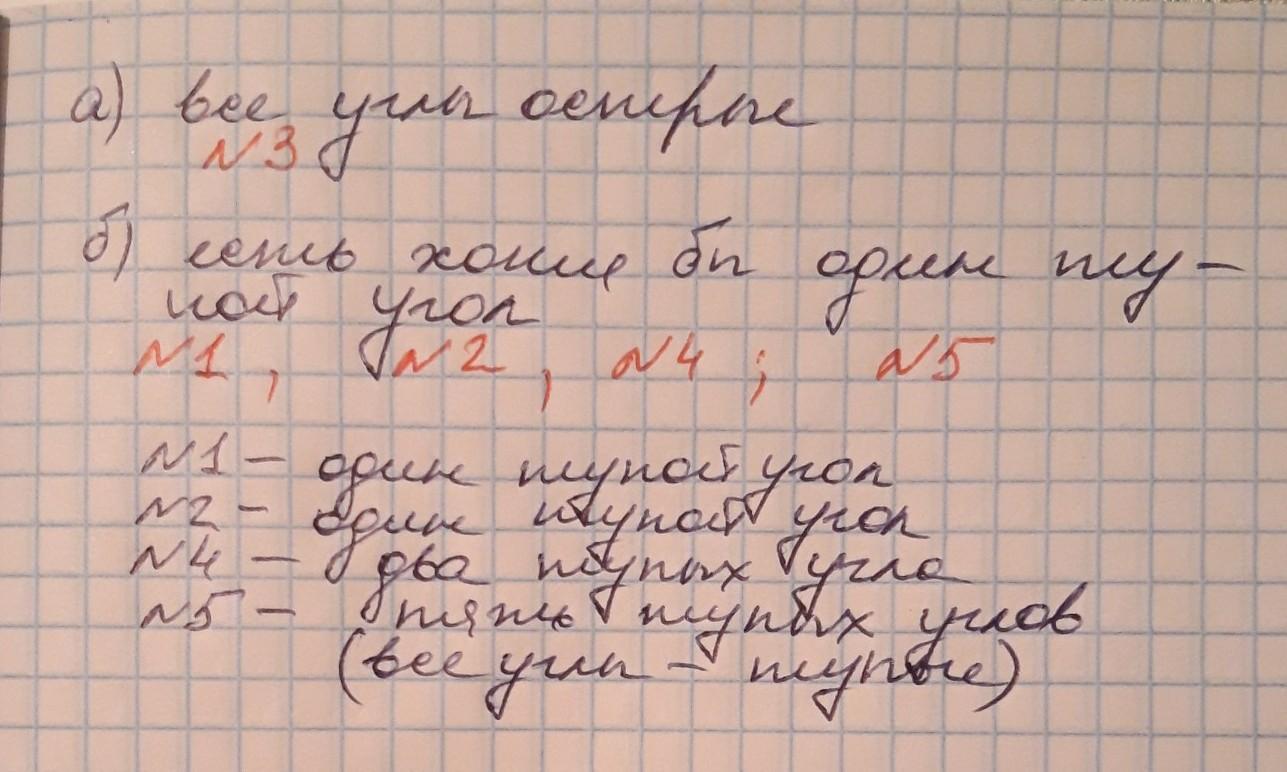 а) все углы острые
N3
б) есть хотя бы один ту-
пой угол
N1, N2, N4; N5
N1 – один тупой угол
N2 – один тупой угол
N4 – два тупых угла
N5 – пять тупых углов
(все углы – тупые)